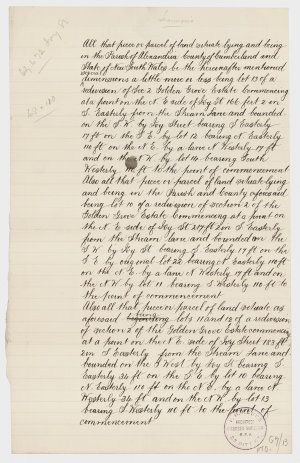 All that piece or parcel of land situate lying and being
in the Parish of Alexandria County of Cumberland and
State of New South Wales be the hereinafter mentioned
dimensions a little more or less being lot 13 of a
redivision of Sec 2 Golden Grove Estate Commencing
at a point on the N E side of Ivy St 166 feet 2 in
S Easterly from the Shram Lane and bounded
on the S W by Ivy Street bearing S Easterly
17 ft on the S E by lot 12 bearing N Easterly
110 ft on the N E by a lane N Westerly 17 ft
and on the N W by lot 14 bearing South
Westerly 110 ft to the point of commencement
Also all that piece or parcel of land situate lying
and being in the Parish and County aforesaid
being lot 10 of a redivision of section 2 of the
Golden Grove Estate Commencing at a point on
the N E side of Ivy St 217 ft 2 in S Easterly
from the Lane and bounded on the
S W by Ivy St bearing S Easterly 17 ft on the
S E by original lot 22 bearing N Easterly 110 ft
on the N E by a lane N Westerly 17 ft and on
the N W by lot 11 bearing S Westerly 110 ft to
the point of commencement
Also all that piece or parcel of land situate as
aforesaid being lots 11 and 12 of a redivision
of section 2 of the Golden Grove Estate commencing
at a point on the N E side of Ivy Street 183 ft
2 in S Easterly from the Lane and
bounded on the S West by Ivy St bearing S
Easterly 34 ft on the S E by lot 10 bearing
N Easterly 110 ft on the N E by a lane N
Westerly 34 ft and on the N W by lot 13
bearing S Westerly 110 ft to the point of
commencement